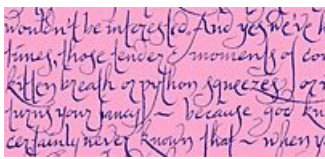 wouldn't be interested. And yes we've h
times, those tender moments of co
kitten breath or python squeezes, or
turns your fancy ~ because god kn
certainly never known that ~ when y